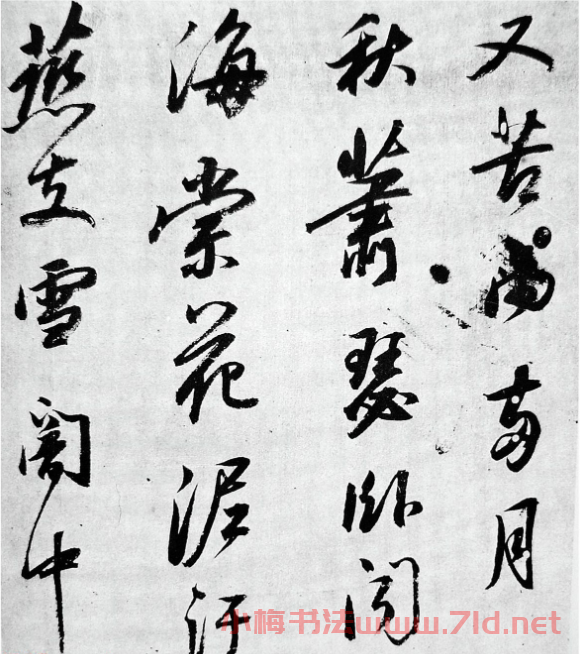 又苦雨兩月
秋蕭瑟卧聞
海棠花泥汙
燕支雪闇中
小梅书法www.7ld.net